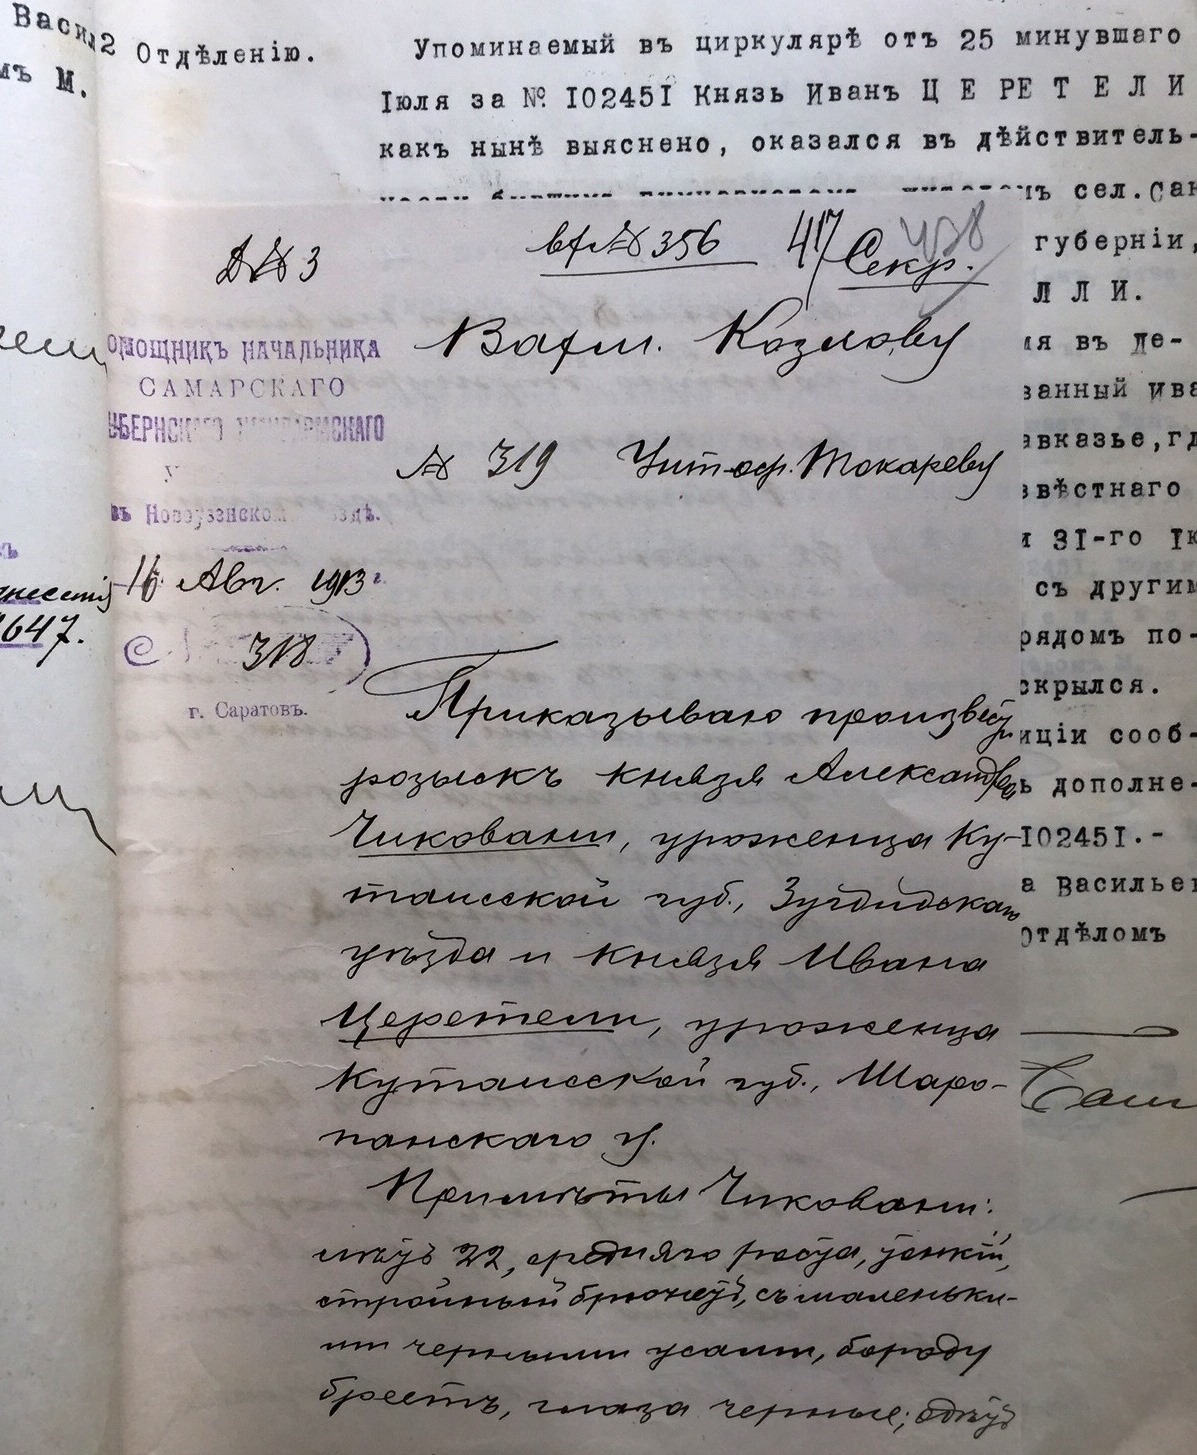 Васил
мъ М.
647.
2 Отдѣленію.
Упоминаемый въ циркулярѣ отъ 25 минувшаго
Іюля за № I0245I Князь Иванъ Ц Е Р Е Т Е Л И
какъ нынѣ выяснено, оказался въ дѣйствитель-
мъ сел.Сак
губерніи,
Л Л И.
ія въ де-
ванный ива
авказье,гд
звѣстнаго
и 3I-го Ік
съ другим
рядомъ по-
скрылся.
иціи сооб-
ь дополне-
I0245I.-
а Васильев
Отдѣломъ
№ 3
вх № 356
417
Секр.
438
ОМОЩНИКЪ НАЧАЛЬНИКА
САМАРСКАГО
УБЕРНСКАГО ЖАНДАРМСКАГО
У
въ Новоузенском ѣздѣ.
16 Авг. 1913 г.
318
г. Саратовъ.
Вахм. Козлову
№ 319 Унт-оф. Токареву
Приказываю произвесть
розыскъ князя Александра
Чиковани, уроженца Ку-
таисской губ., Зугдидскаго
уѣзда и князя Ивана
Церетели, уроженца
Кутаисской губ., Шаро-
панскаго у.
Примѣты Чиковани:
лѣтъ 22, средняго роста, тонкій,
стройный брюнетъ, съ маленьки-
ми черными усами, бороду
брѣетъ, глаза черные; одѣтъ